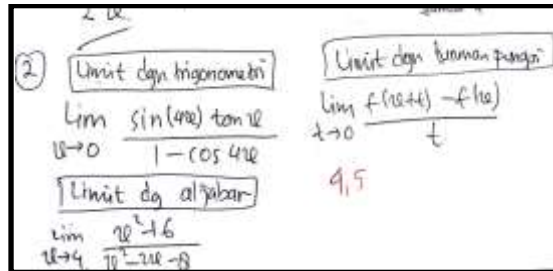 ②
Limit dgn trigonometri
Lim x→0 sin(4x) tan x / 1 - cos 4x
Limit dg aljabar
Lim x→4 x²-16 / x²-2x-8
Limit dgn turunan fungsi
Lim t→0 f(x+t) - f(x) / t
4,5